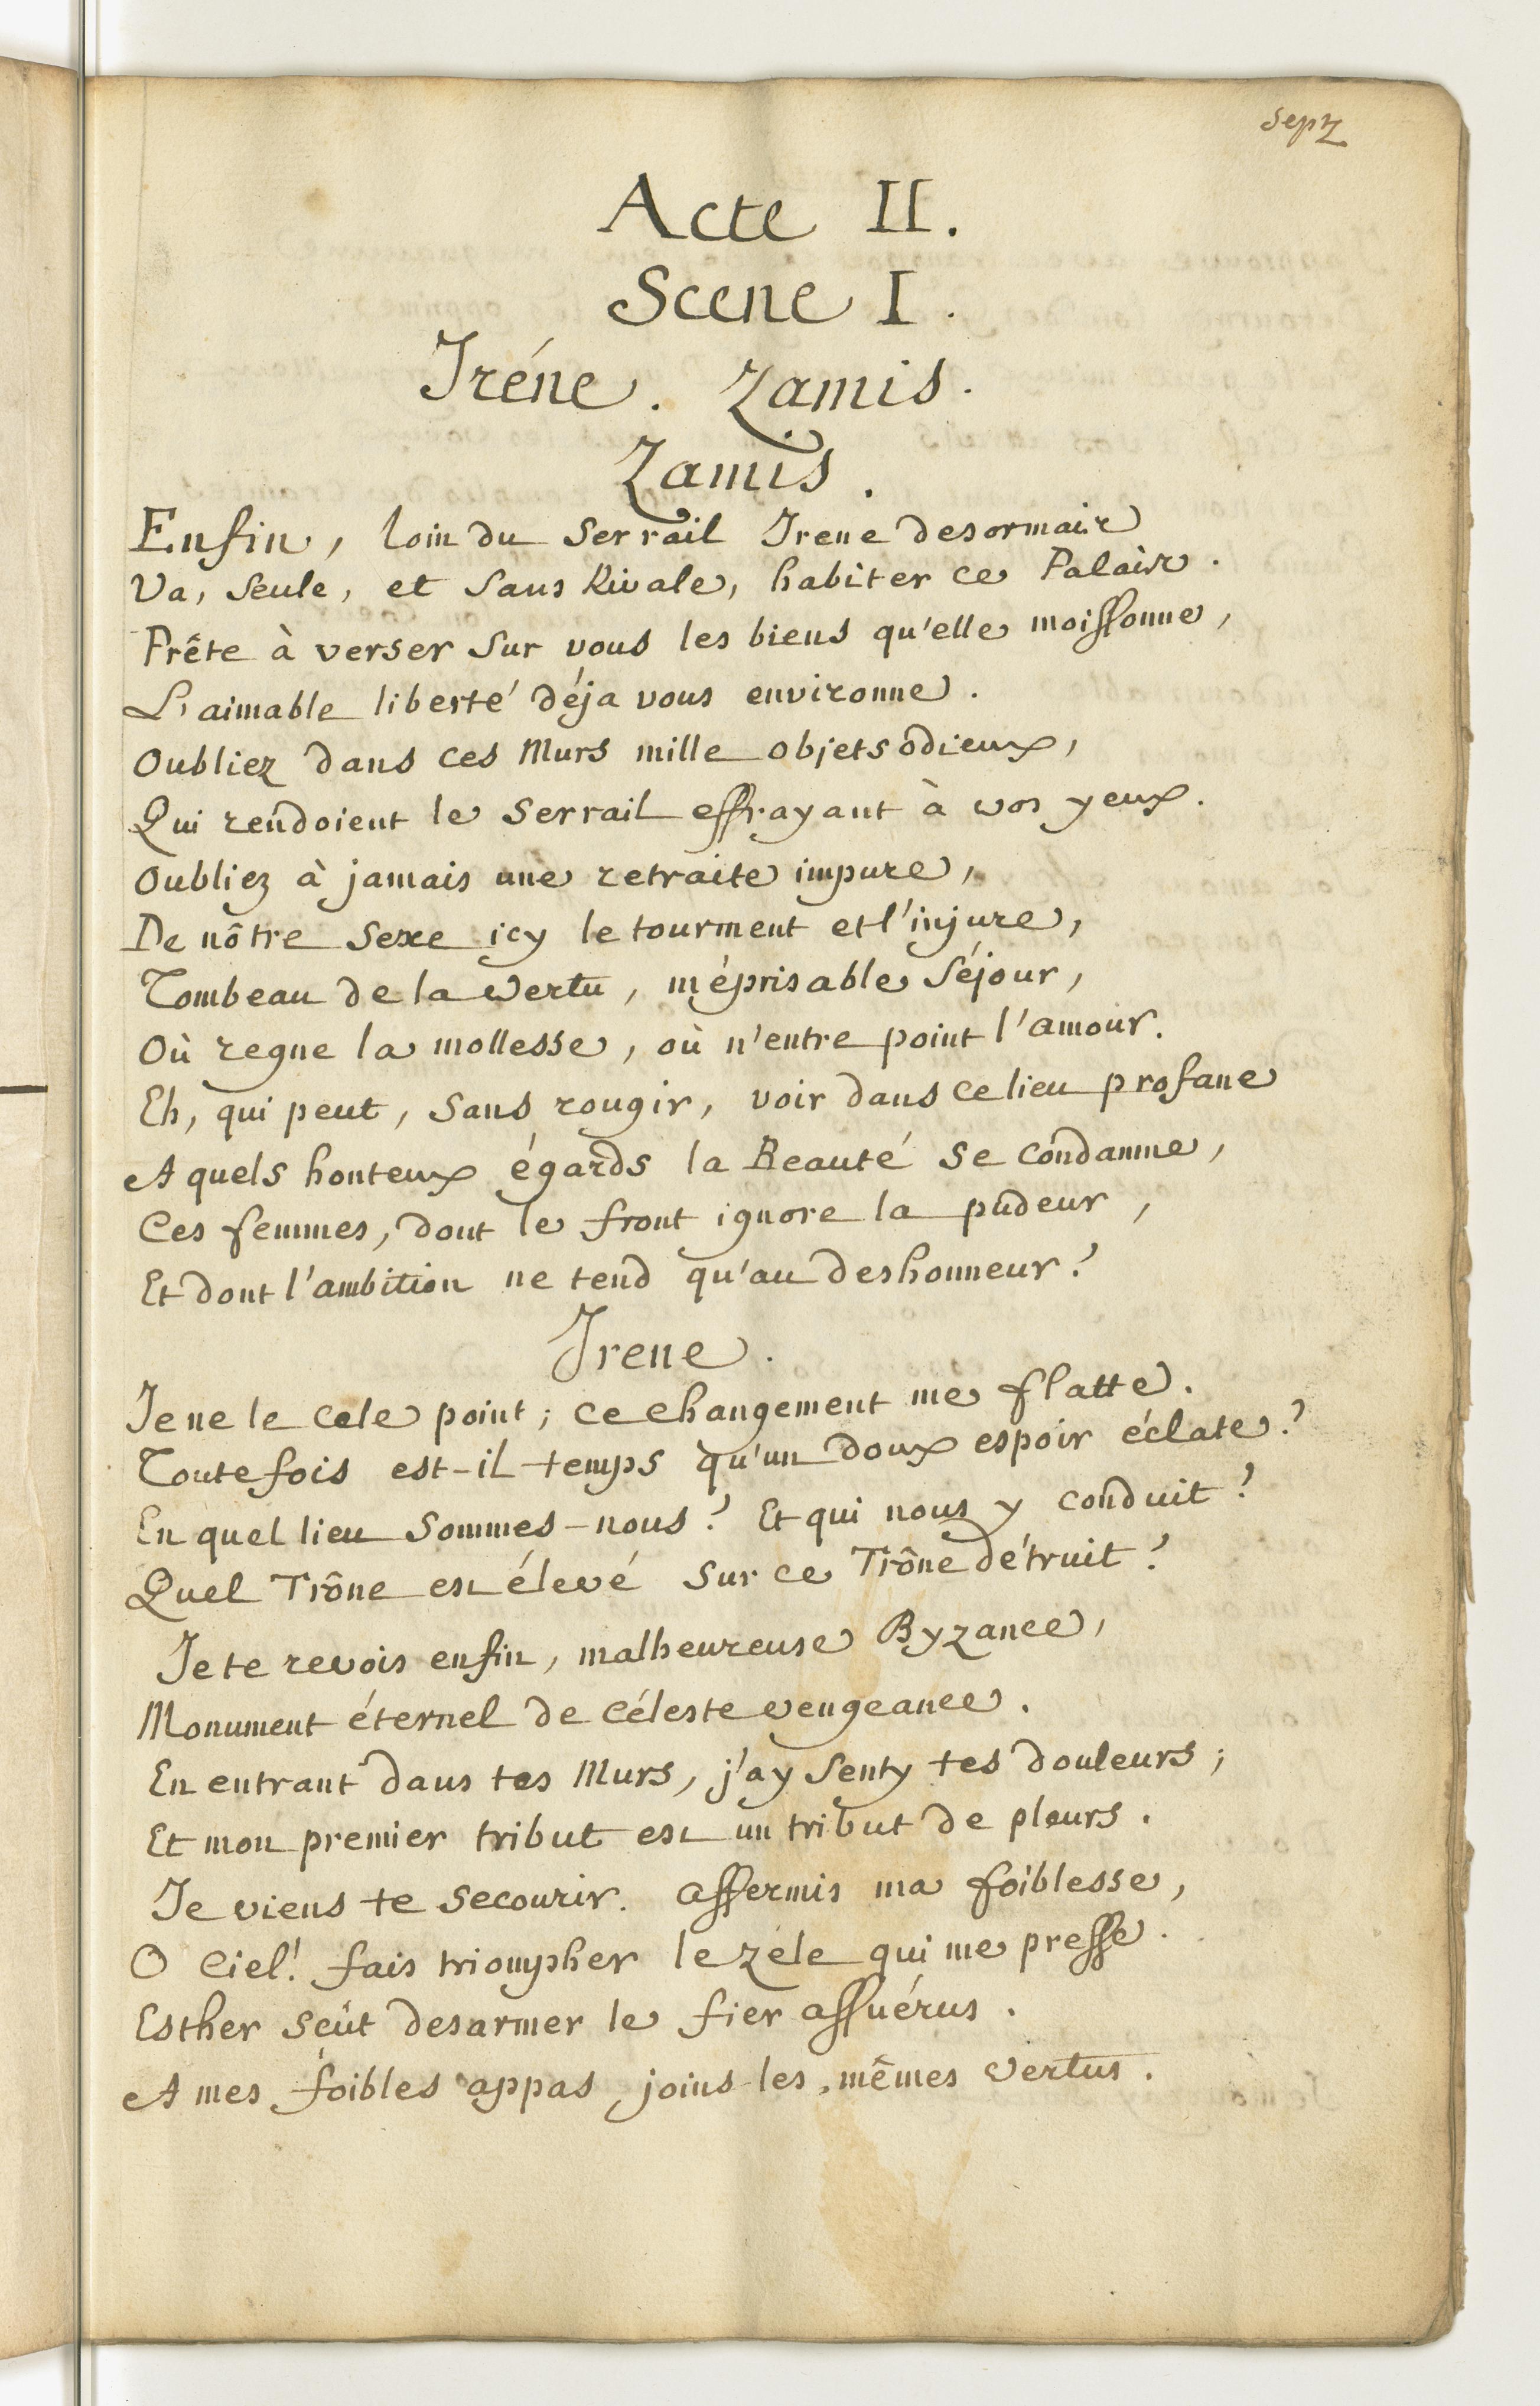 Septz
Acte II.
Scene I.
Iréne. Zamis.
Zamis.
Enfin, loin du Serrail Irene desormais
Va, seule, et sans Rivale, habiter ce Palais.
Prête à verser sur vous les biens qu'elle moissonne,
L'aimable liberté déja vous environne.
Oubliez dans ces Murs mille objets odieux,
Qui rendoient le Serrail effrayant à vos yeux.
Oubliez à jamais une retraite impure,
De nôtre Sexe icy le tourment et l'injure,
Tombeau de la Vertu, méprisable Séjour,
Où regne la mollesse, où n'entre point l'amour.
Eh, qui peut, sans rougir, voir dans ce lieu profane
A quels honteux égards la Beauté se condamne,
Ces femmes, dont le front ignore la pudeur,
Et dont l'ambition ne tend qu'au deshonneur?
Irene.
Je ne le cele point; ce changement me flatte.
Toutefois est-il temps qu'un doux espoir éclate?
En quel lieu sommes-nous? Et qui nous y conduit?
Quel Trône est élevé sur ce Trône détruit?
Je te revois enfin, malheureuse Byzance,
Monument éternel de céleste vengeance.
En entrant dans tes Murs, j'ay senty tes douleurs;
Et mon premier tribut est un tribut de pleurs.
Je viens te secourir. Affermis ma foiblesse,
O Ciel! fais triompher le zéle qui me presse.
Esther sçût desarmer le fier Assuérus.
A mes foibles appas joins les mêmes Vertus.